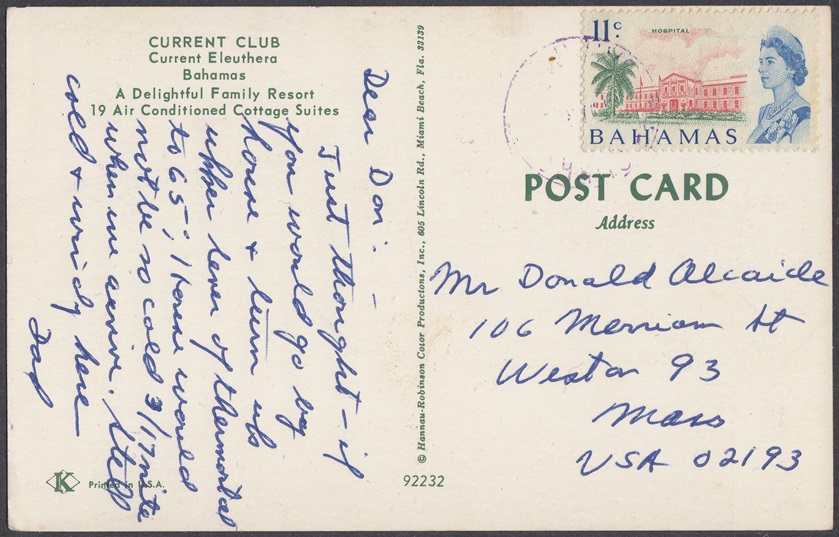 CURRENT CLUB
Current Eleuthera
Bahamas
A Delightful Family Resort
19 Air Conditioned Cottage Suites
Dear Don: -
Just thought - if
you would go by
house & turn up
upper lever of thermostat
to 65°, house would
not be so cold 3/17 nite
when we arrive. Still
cold & windy here
Dad
K
Printed in U.S.A.
92232
© Hannau-Robinson Color Productions, Inc., 605 Lincoln Rd., Miami Beach, Fla. 33139
11c
HOSPITAL
BAHAMAS
POST CARD
Address
Mr Donald Alcaide
106 Merriam St
Weston 93
Mass
USA 02193